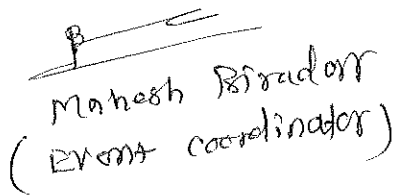 Mahesh Biradar
(Event coordinator)